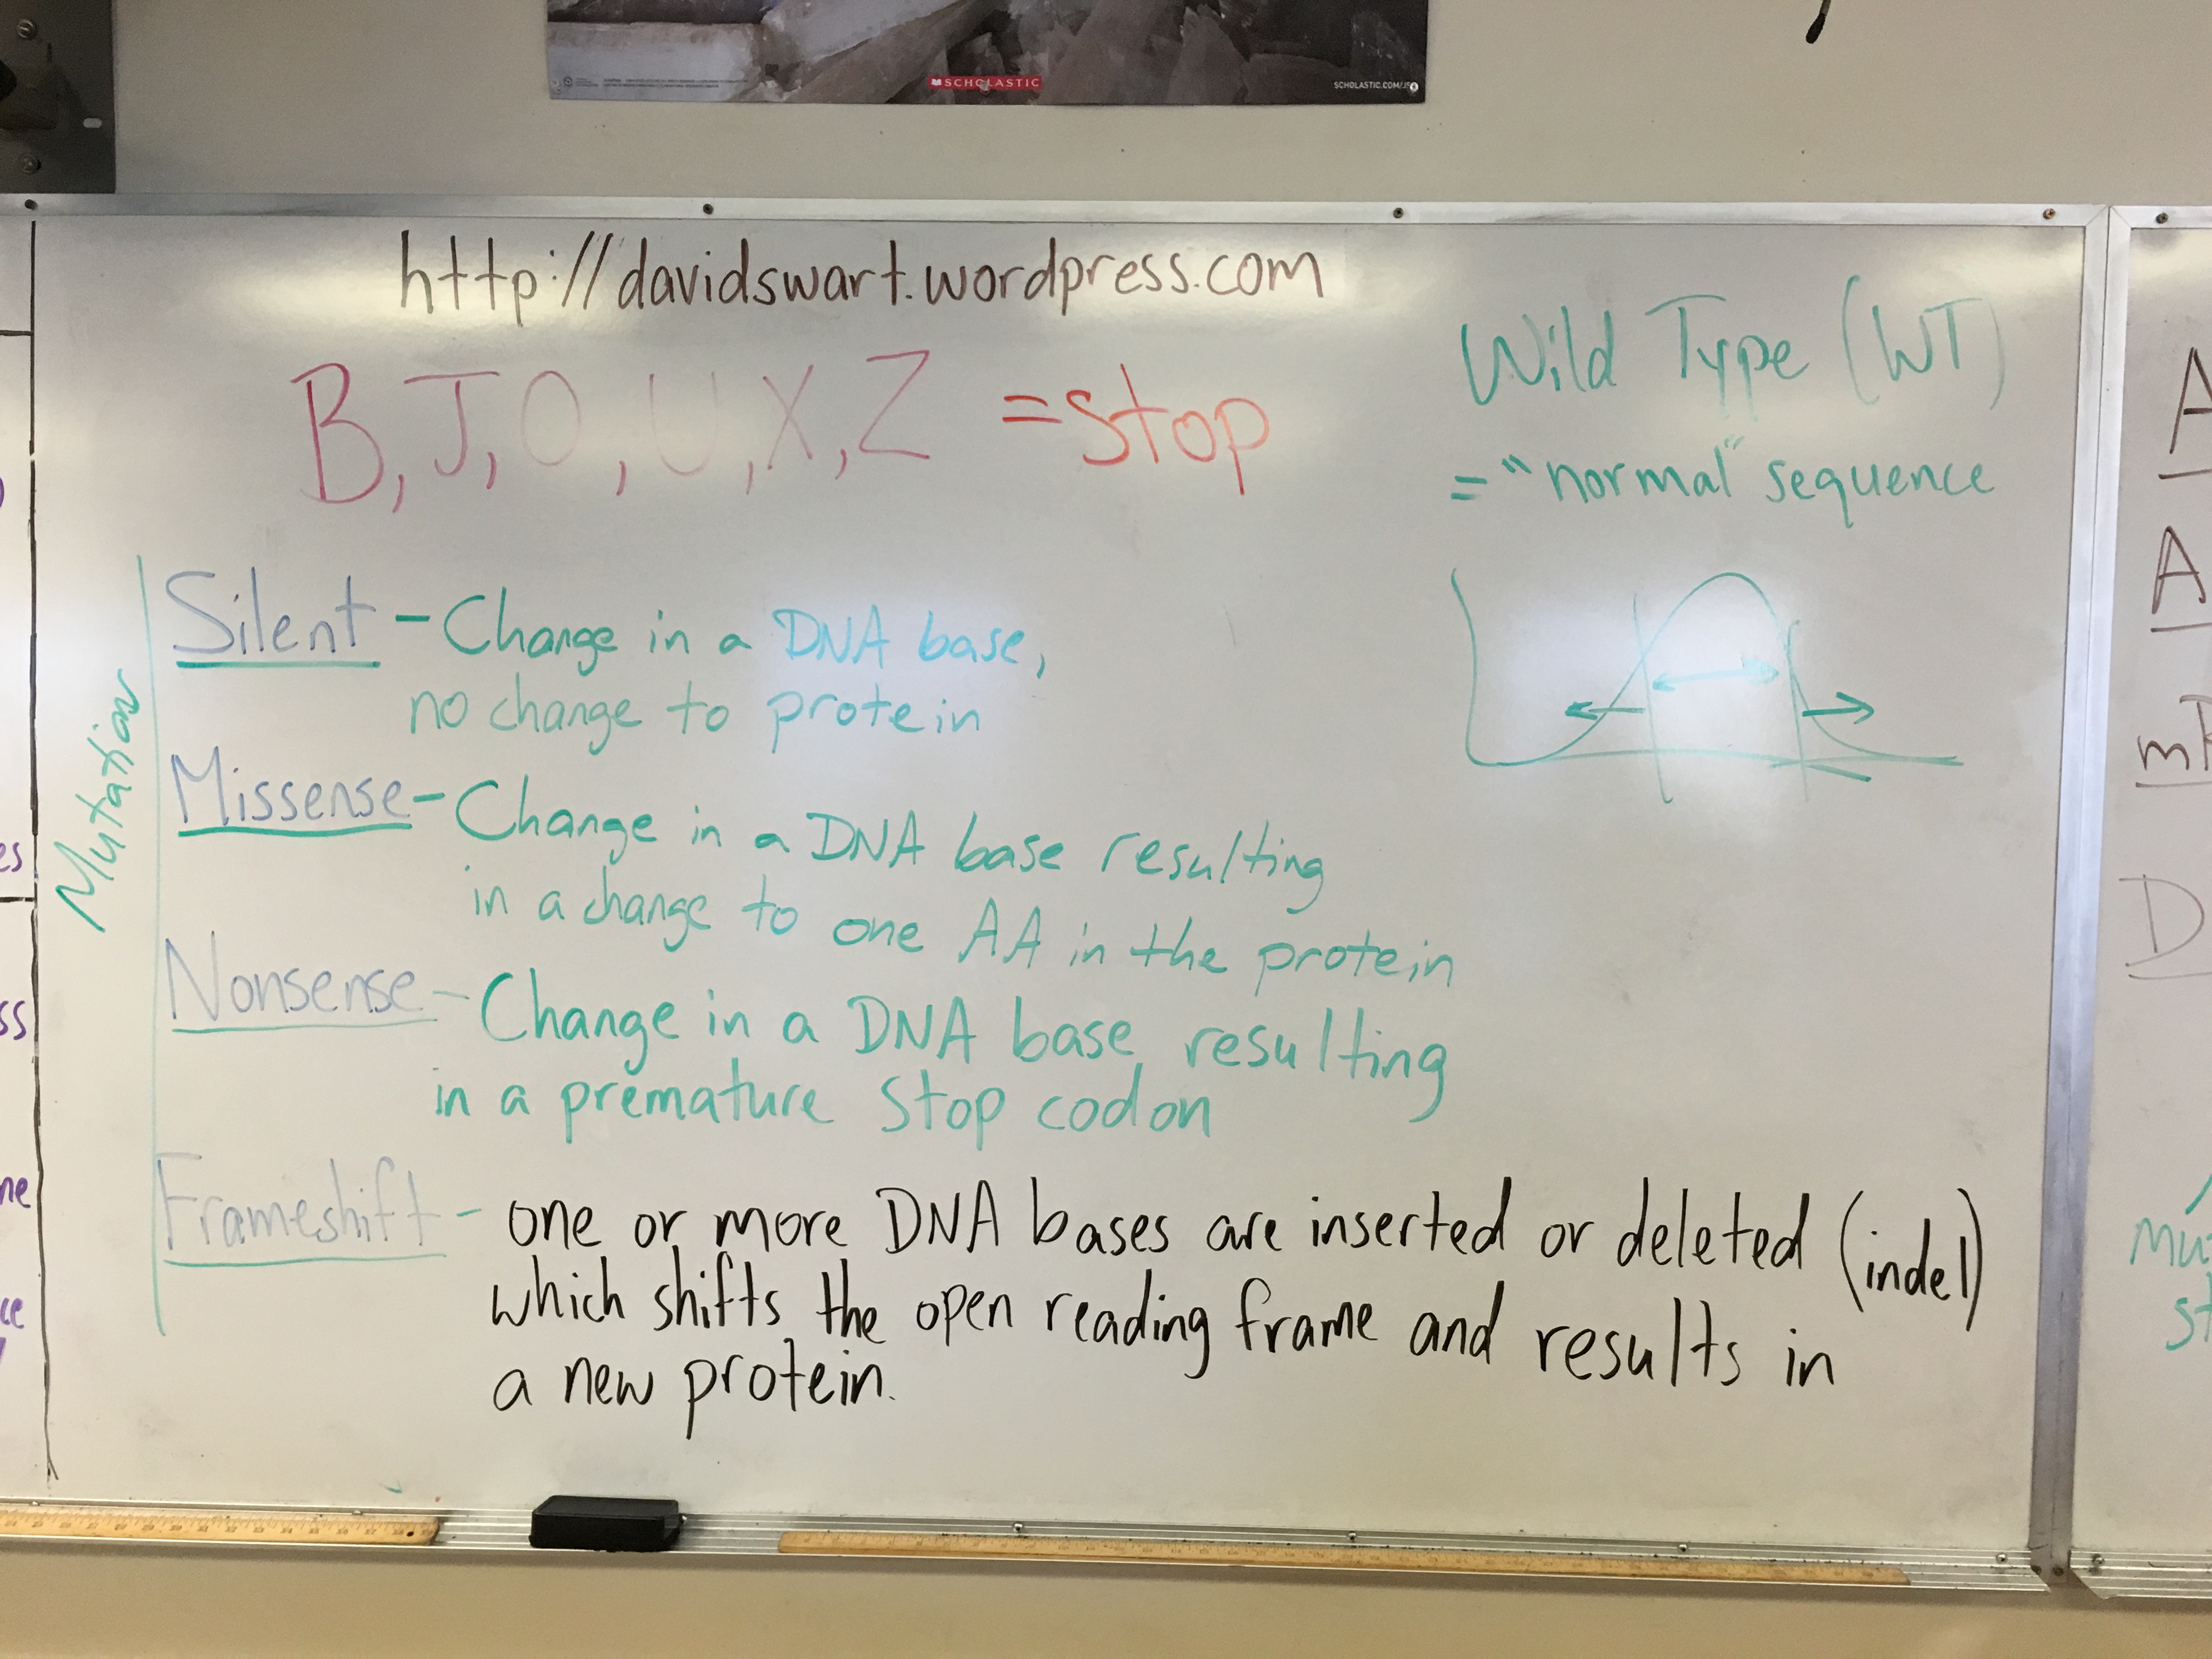 SCHOLASTIC
http://davidswart.wordpress.com
B, J, O, U, X, Z = stop
Wild Type (WT)
= "normal" sequence
Mutation
Silent - Change in a DNA base,
no change to protein
Missense - Change in a DNA base resulting
in a change to one AA in the protein
Nonsense - Change in a DNA base resulting
in a premature stop codon
Frameshift - one or more DNA bases are inserted or deleted (indel)
which shifts the open reading frame and results in
a new protein.
A
A
D